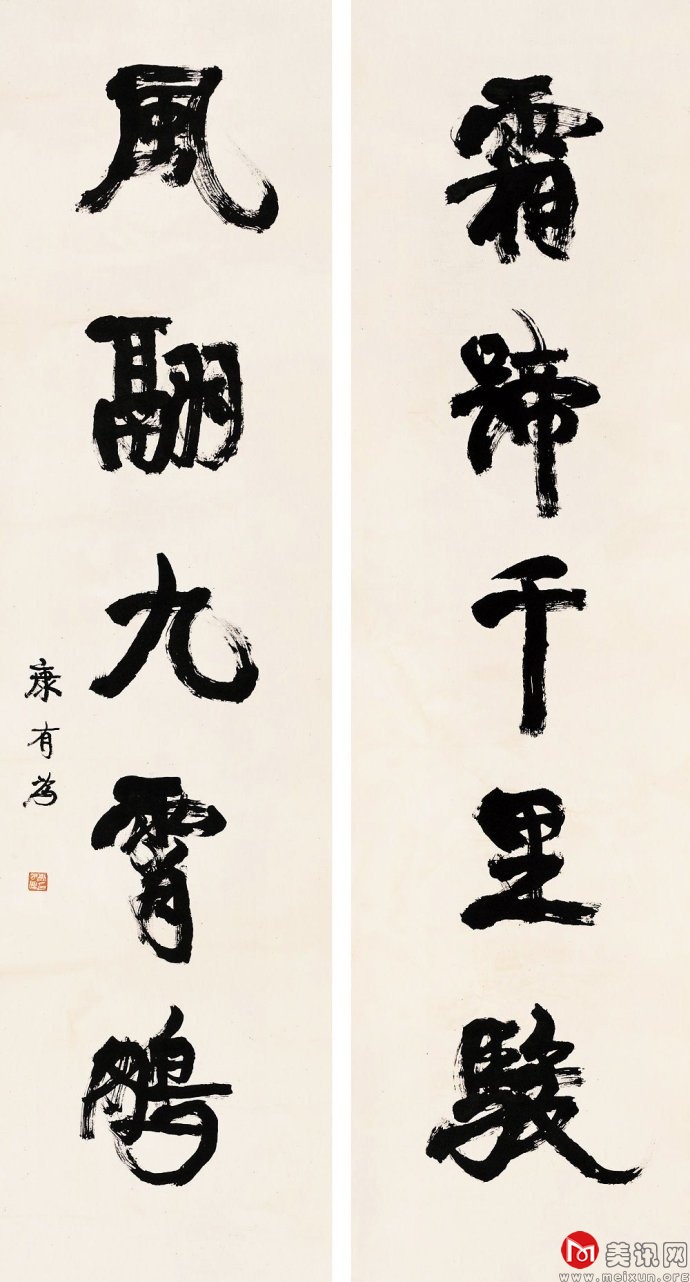 霜蹄千里駿
風翮九霄鵬
康有為
美讯网
www.meixun.org